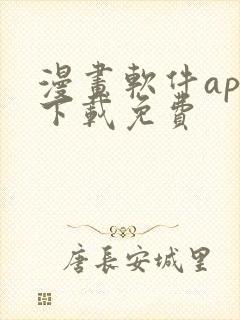 漫畫軟件ap
下載免費
唐長安城里